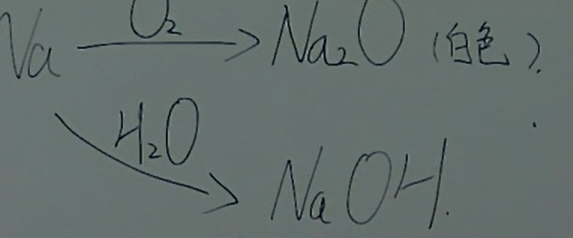 Na —O₂→ Na₂O (白色).
H₂O
NaOH.